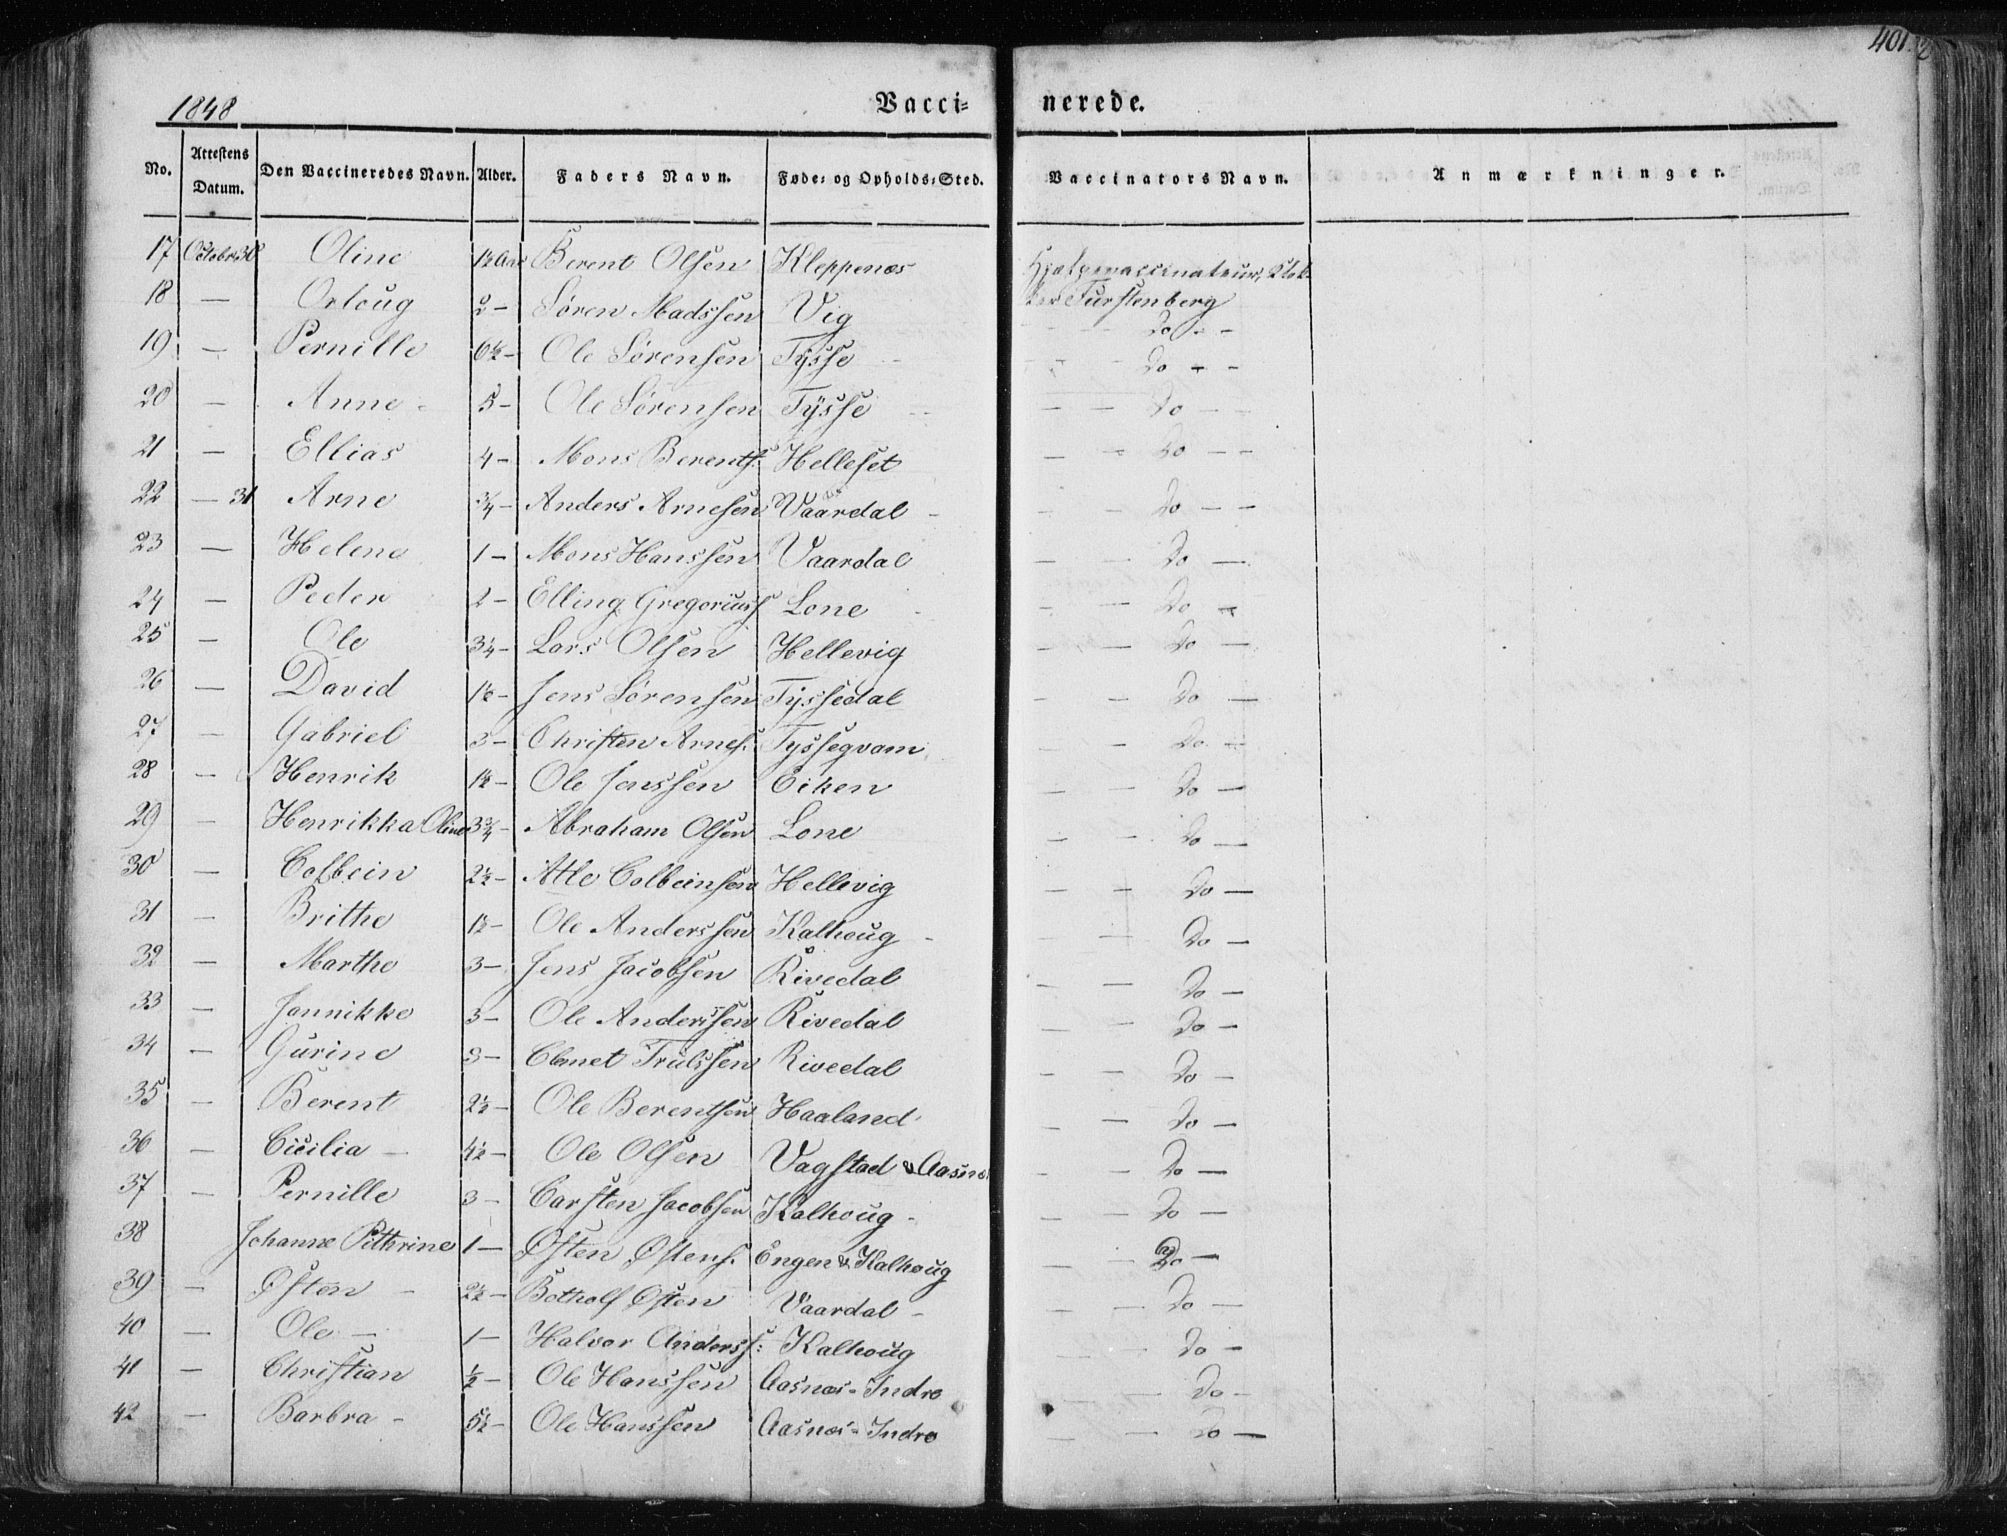 401
1848 Vacci= nerede.
No. Attestens Datum. Den Vaccineredes Navn. Alder. Faders Navn. Føde= og Opholds=Sted. Vaccinators Navn. Anmærkninger.
17 Octobr 30 Oline 1½ Aar Berent Olsen Kleppenæs Hjælpevaccinateur, Klok-
18 — Orloug 2 — Søren Madssen Vig ker Furstenberg
— Do — —
19 — Pernille 6½ — Ole Sørensen Tysse — — Do — —
20 — Anne — 5 — Ole Sørensen Tysse — — — Do — —
21 — Ellias 4 — Mons Berents: Helleset — — Do — —
22 — 31 Arne ¾ — Anders Arnesen Vaardal — — — Do — —
23 — Helene 1 — Mons Hanssen Vaardal — — Do —
24 — Peder 2 — Elling Gregoriuss Lone — — — Do —
25 — Ole 3¼ — Lars Olsen Hellevig — — Do —
26 — David 1½ — Jens Sørensen Tyssedal — — Do —
27 — Gabriel 3 — Christen Arnes: Tyssegvam — — Do —
28 — Henrik 1½ — Ole Jenssen Eiken — — Do —
29 — Henrikka Oline 3¾ — Abraham Olsen Lone — — Do —
30 — Colbein 2½ — Atle Colbeinsen Hellevig — — Do —
31 — Brithe 1½ — Ole Anderssen Kalhoug — — — Do —
32 — Marthe 3 — Jens Jacobsen Rivedal — — Do —
33 — Jannikke 3 — Ole Anderssen Rivedal — — Do —
34 — Gurine 3 — Clemet Trulssen Rivedal — — Do —
35 — Berent 2½ — Ole Berentsen Haaland — — Do —
36 — Cicilia — 4½ — Ole Olsen Vagstad & Aasnæs — — Do —
37 — Pernille 3 — Carsten Jacobsen Kalhoug — — — Do —
38 Johanne Pethrine 1 — Østen Østens. Engen & Kalhoug — — Do —
39 — Østen — 2½ — Botholf Østen Vaardal — — — Do —
40 — Ole — 1 — Halvor Anderss: Kalhoug — — Do —
41 — Christian ½ — Ole Hanssen Aasnæs-Indre — — Do —
42 — Barbra — 5½ — Ole Hanssen Aasnæs-Indre — — Do —